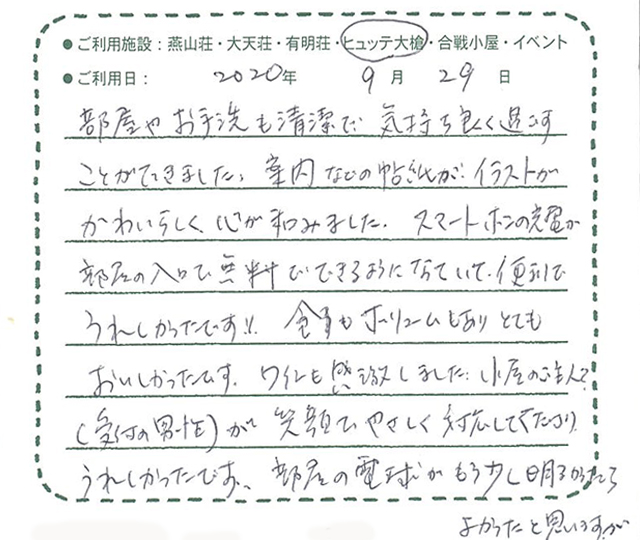 ●ご利用施設：燕山荘・大天荘・有明荘・ヒュッテ大槍・合戦小屋・イベント
●ご利用日： 2020年 9月 29日
部屋やお手洗も清潔で 気持ち良く過ごす
ことができました。案内などの帖紙が、イラストが
かわいらしく、心が和みました。スマートホンの充電が
部屋の入口で無料でできるようになっていて、便利で
うれしかったです!! 食事もボリュームもあり とても
おいしかったです。ワインも感激しました。小屋のご主人?
(受付の男性)が 笑顔で やさしく 対応してくださり
うれしかったです。部屋の電球が もう少し明るかったら
よかったと思いますが